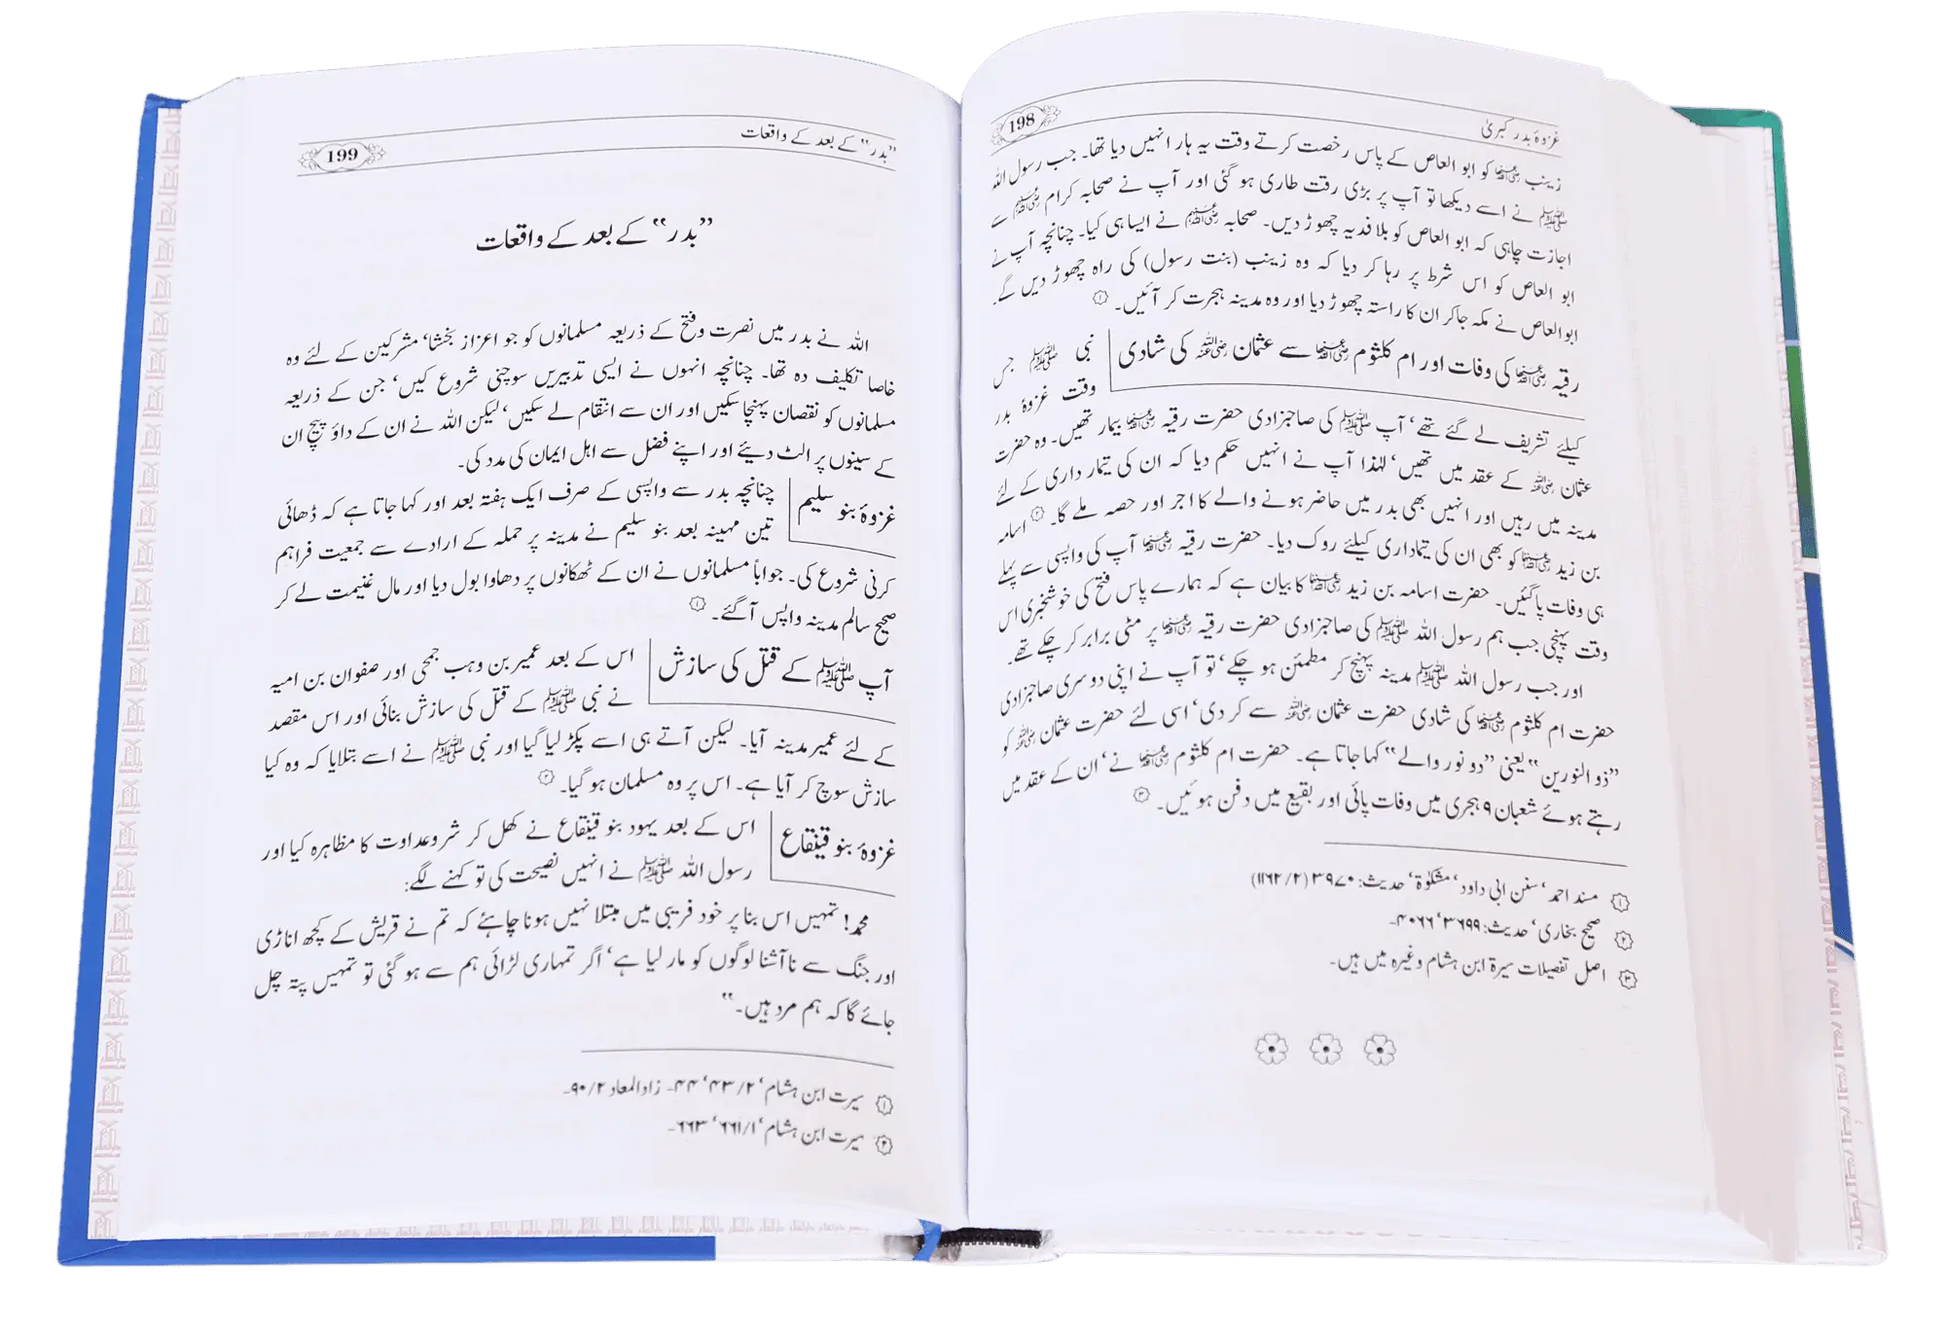 غزوۂ بدر کبریٰ
198
زینب ؓ کو ابو العاص کے پاس رخصت کرتے وقت یہ ہار انہیں دیا تھا۔ جب رسول اللہ
ﷺ نے اسے دیکھا تو آپ پر بڑی رقت طاری ہو گئی اور آپ نے صحابہ کرام ؓ سے
اجازت چاہی کہ ابو العاص کو بلا فدیہ چھوڑ دیں۔ صحابہ ؓ نے ایسا ہی کیا۔ چنانچہ آپ نے
ابو العاص کو اس شرط پر رہا کر دیا کہ وہ زینب (بنت رسول) کی راہ چھوڑ دیں گے۔
ابو العاص نے مکہ جا کر ان کا راستہ چھوڑ دیا اور وہ مدینہ ہجرت کر آئیں۔ ①
رقیہ ؓ کی وفات اور ام کلثوم ؓ سے عثمان ؓ کی شادی
نبی ﷺ جس
وقت غزوۂ بدر
کیلئے تشریف لے گئے تھے‘ آپ ﷺ کی صاجزادی حضرت رقیہ ؓ بیمار تھیں۔ وہ حضرت
عثمان ؓ کے عقد میں تھیں‘ لہٰذا آپ نے انہیں حکم دیا کہ ان کی تیمار داری کے لئے
مدینہ میں رہیں اور انہیں بھی بدر میں حاضر ہونے والے کا اجر اور حصہ ملے گا۔ ② اسامہ
بن زید ؓ کو بھی ان کی تیمارداری کیلئے روک دیا۔ حضرت رقیہ ؓ آپ کی واپسی سے پہلے
ہی وفات پاگئیں۔ حضرت اسامہ بن زید ؓ کا بیان ہے کہ ہمارے پاس فتح کی خوشخبری اس
وقت پہنچی جب ہم رسول اللہ ﷺ کی صاجزادی حضرت رقیہ ؓ پر مٹی برابر کر چکے تھے۔
اور جب رسول اللہ ﷺ مدینہ پہنچ کر مطمئن ہو چکے‘ تو آپ نے اپنی دوسری صاجزادی
حضرت ام کلثوم ؓ کی شادی حضرت عثمان ؓ سے کر دی‘ اسی لئے حضرت عثمان ؓ کو
”ذوالنورین“ یعنی ”دو نور والے“ کہا جاتا ہے۔ حضرت ام کلثوم ؓ نے‘ ان کے عقد میں
رہتے ہوئے شعبان ۹ ہجری میں وفات پائی اور بقیع میں دفن ہوئیں۔ ③
① مسند احمد‘ سنن ابی داود‘ مشکوٰۃ‘ حدیث: ۳۹۷۰ (۲/۱۱۶۲)
② صحیح بخاری‘ حدیث: ۳۶۹۹‘ ۴۰۶۶۔
③ اصل تفصیلات سیرۃ ابن ہشام وغیرہ میں ہیں۔
”بدر“ کے بعد کے واقعات
199
”بدر“ کے بعد کے واقعات
اللہ نے بدر میں نصرت وفتح کے ذریعہ مسلمانوں کو جو اعزاز بخشا‘ مشرکین کے لئے وہ
خاصا تکلیف دہ تھا۔ چنانچہ انہوں نے ایسی تدبیریں سوچنی شروع کیں‘ جن کے ذریعہ
مسلمانوں کو نقصان پہنچا سکیں اور ان سے انتقام لے سکیں‘ لیکن اللہ نے ان کے داؤ پیچ ان
کے سینوں پر الٹ دیئے اور اپنے فضل سے اہل ایمان کی مدد کی۔
غزوۂ بنو سلیم
چنانچہ بدر سے واپسی کے صرف ایک ہفتہ بعد اور کہا جاتا ہے کہ ڈھائی
تین مہینہ بعد بنو سلیم نے مدینہ پر حملہ کے ارادے سے جمعیت فراہم
کرنی شروع کی۔ جواباً مسلمانوں نے ان کے ٹھکانوں پر دھاوا بول دیا اور مال غنیمت لے کر
صحیح سالم مدینہ واپس آگئے۔ ①
آپ ﷺ کے قتل کی سازش
اس کے بعد عمیر بن وہب جمحی اور صفوان بن امیہ
نے نبی ﷺ کے قتل کی سازش بنائی اور اس مقصد
کے لئے عمیر مدینہ آیا۔ لیکن آتے ہی اسے پکڑ لیا گیا اور نبی ﷺ نے اسے بتلایا کہ وہ کیا
سازش سوچ کر آیا ہے۔ اس پر وہ مسلمان ہو گیا۔ ②
غزوۂ بنو قینقاع
اس کے بعد یہود بنو قینقاع نے کھل کر شروعداوت کا مظاہرہ کیا اور
رسول اللہ ﷺ نے انہیں نصیحت کی تو کہنے لگے:
محمد! تمہیں اس بنا پر خود فریبی میں مبتلا نہیں ہونا چاہئے کہ تم نے قریش کے کچھ اناڑی
اور جنگ سے ناآشنا لوگوں کو مار لیا ہے‘ اگر تمہاری لڑائی ہم سے ہو گئی تو تمہیں پتہ چل
جائے گا کہ ہم مرد ہیں۔“
① سیرت ابن ہشام‘ ۲/۴۳‘ ۴۴۔ زادالمعاد ۲/۹۰۔
② سیرت ابن ہشام‘ ۱/۶۶۱‘ ۶۶۳۔